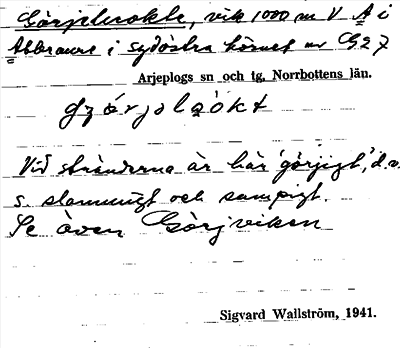 Görjeluokte, vik 1000 m V A i
i sydöstra hörnet av G27
Arjeplogs sn och tg, Norrbottens län.
Vid stränderna är här 'görjigt', d.v.
s. slammigt och sumpigt.
Se även Görjviken
Sigvard Wallström, 1941.